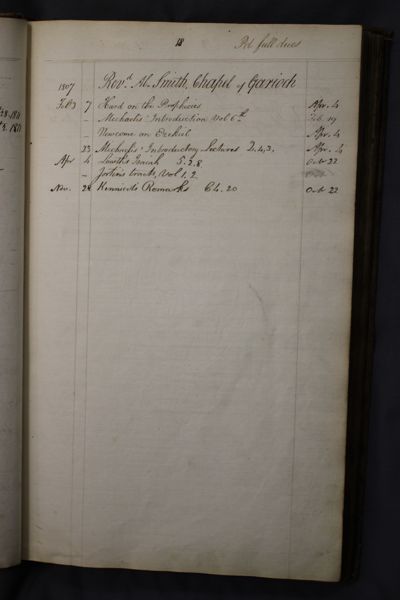 18 Pd full dues
1807 Revd. Al. Smith, Chapel of Garioch
Feb 7 Hurd on the Prophecies Apr. 4
– Michaelis' Introduction Vol 6th Feb. 19
Newcome on Ezekiel Apr. 4
23 Michaelis' Introductory Lectures Q. 4, 3, Apr. 4
Apr 4 Lowth's Isaiah S. 2. 8 Oct 22
– Jortin's tracts, Vol 1, 2
Nov. 28 Kennicots Remarks C4. 20 Oct 22